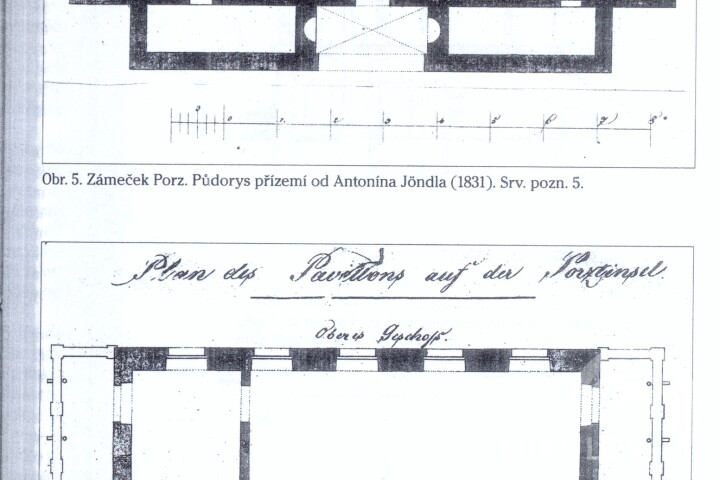 0 1 2 3 4 5 6 7 8
Obr. 5. Zámeček Porz. Půdorys přízemí od Antonína Jöndla (1831). Srv. pozn. 5.
Plan des Pavillons auf der Porztinsel.
Oberes Geschoss.